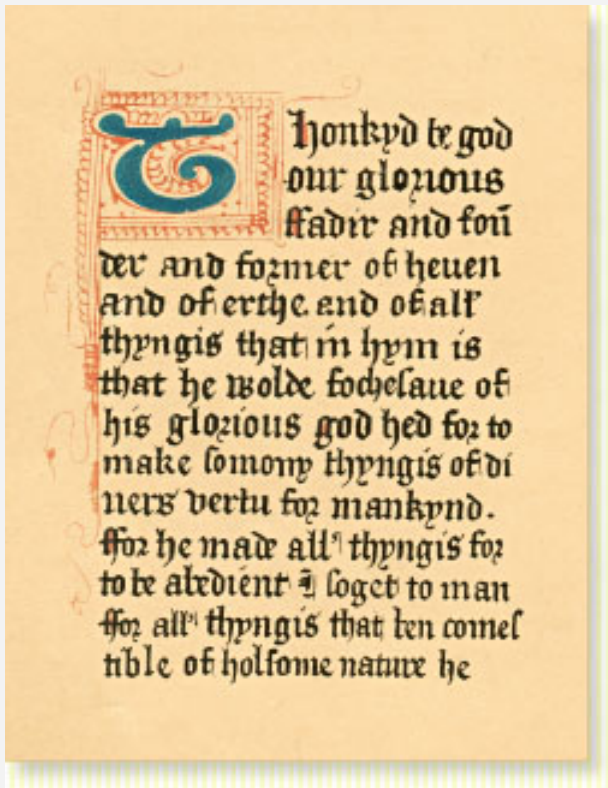 Thonkyd be god
our glorious
ffadir and foū
der and former of heuen
and of erthe and of all
thyngis that in hym is
that he wolde fochesaue of
his glorious god hed for to
make somony thyngis of di
uers vertu for mankynd.
ffor he made all' thyngis for
to be abedient ⁊ soget to man
ffor all' thyngis that ben comes
tible of holsome nature he